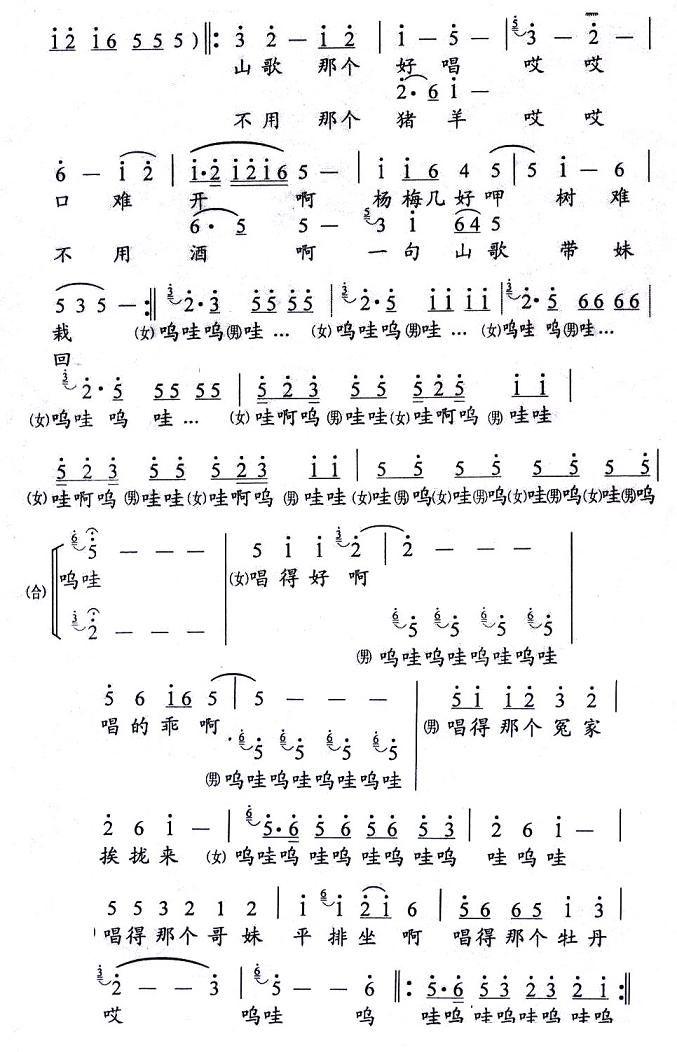 i̇ 2̇ i̇ 6 5 5 5 ) ‖: 3̇ 2̇ — i̇ 2̇ | i̇ — 5 — | 3̇ — 2̇ — |
山歌 那个 好 唱 哎 哎
2̇· 6 i̇ —
不用 那个 猪 羊 哎 哎
6 — i̇ 2̇ | i̇·2̇ i̇2̇i̇6 5 — | i̇ i̇ 6 4 5 | 5 i̇ — 6 |
口 难 开 啊 杨梅几好呷 树 难
6· 5 5 — 3̇ i̇ 64 5
不 用 酒 啊 一句 山歌 带 妹
5 3 5 — :‖ 2̇·3̇ 5̇5̇ 5̇5̇ | 2̇·5 i̇i̇ i̇i̇ | 2̇·5 66 66 |
栽 (女)呜哇呜(男)哇… (女)呜哇呜(男)哇… (女)呜哇 呜(男)哇…
回
2̇·5 55 55 | 5̇ 2̇ 3̇ 5̇ 5̇ 5̇ 2̇ 5̇ i̇ i̇ |
(女)呜哇 呜 哇… (女)哇啊呜 (男)哇哇(女)哇啊呜 (男)哇哇
5̇ 2̇ 3̇ 5̇ 5̇ 5̇ 2̇ 3̇ i̇ i̇ | 5 5̇ 5 5̇ 5 5̇ 5 5̇ |
(女)哇啊呜 (男)哇哇(女)哇啊呜 (男)哇哇 (女)哇(男)呜(女)哇(男)呜(女)哇(男)呜(女)哇(男)呜
5̇ — — — | 5 i̇ i̇ 2̇ | 2̇ — — — |
(合) 呜哇 (女)唱得好 啊
2̇ — — — 5̇ 5̇ 5̇ 5̇
(男) 呜哇呜哇呜哇呜哇
5̇ 6 i̇6 5 | 5 — — — | 5̇i̇ i̇2̇ 3̇ 2̇ |
唱的乖 啊 (男)唱得那个冤家
5̇ 5̇ 5̇ 5̇
(男) 呜哇呜哇呜哇呜哇
2̇ 6 i̇ — | 5̇·6̇ 5̇6̇ 5̇6̇ 5̇3̇ | 2̇ 6 i̇ — |
挨拢来 (女) 呜哇呜 哇呜 哇呜 哇呜 哇呜哇
5 5 3 2 1 2 | i̇ i̇ 2̇i̇ 6 | 56 65 i̇ 3̇ |
唱得那个哥妹 平排坐 啊 唱得那个牡丹
2̇ — — 3̇ | 5̇ — — 6̇ ‖: 5̇·6̇ 5̇3̇ 2̇3̇ 2̇i̇ :‖
哎 呜哇 呜 哇呜 呜哇呜哇呜 哇呜